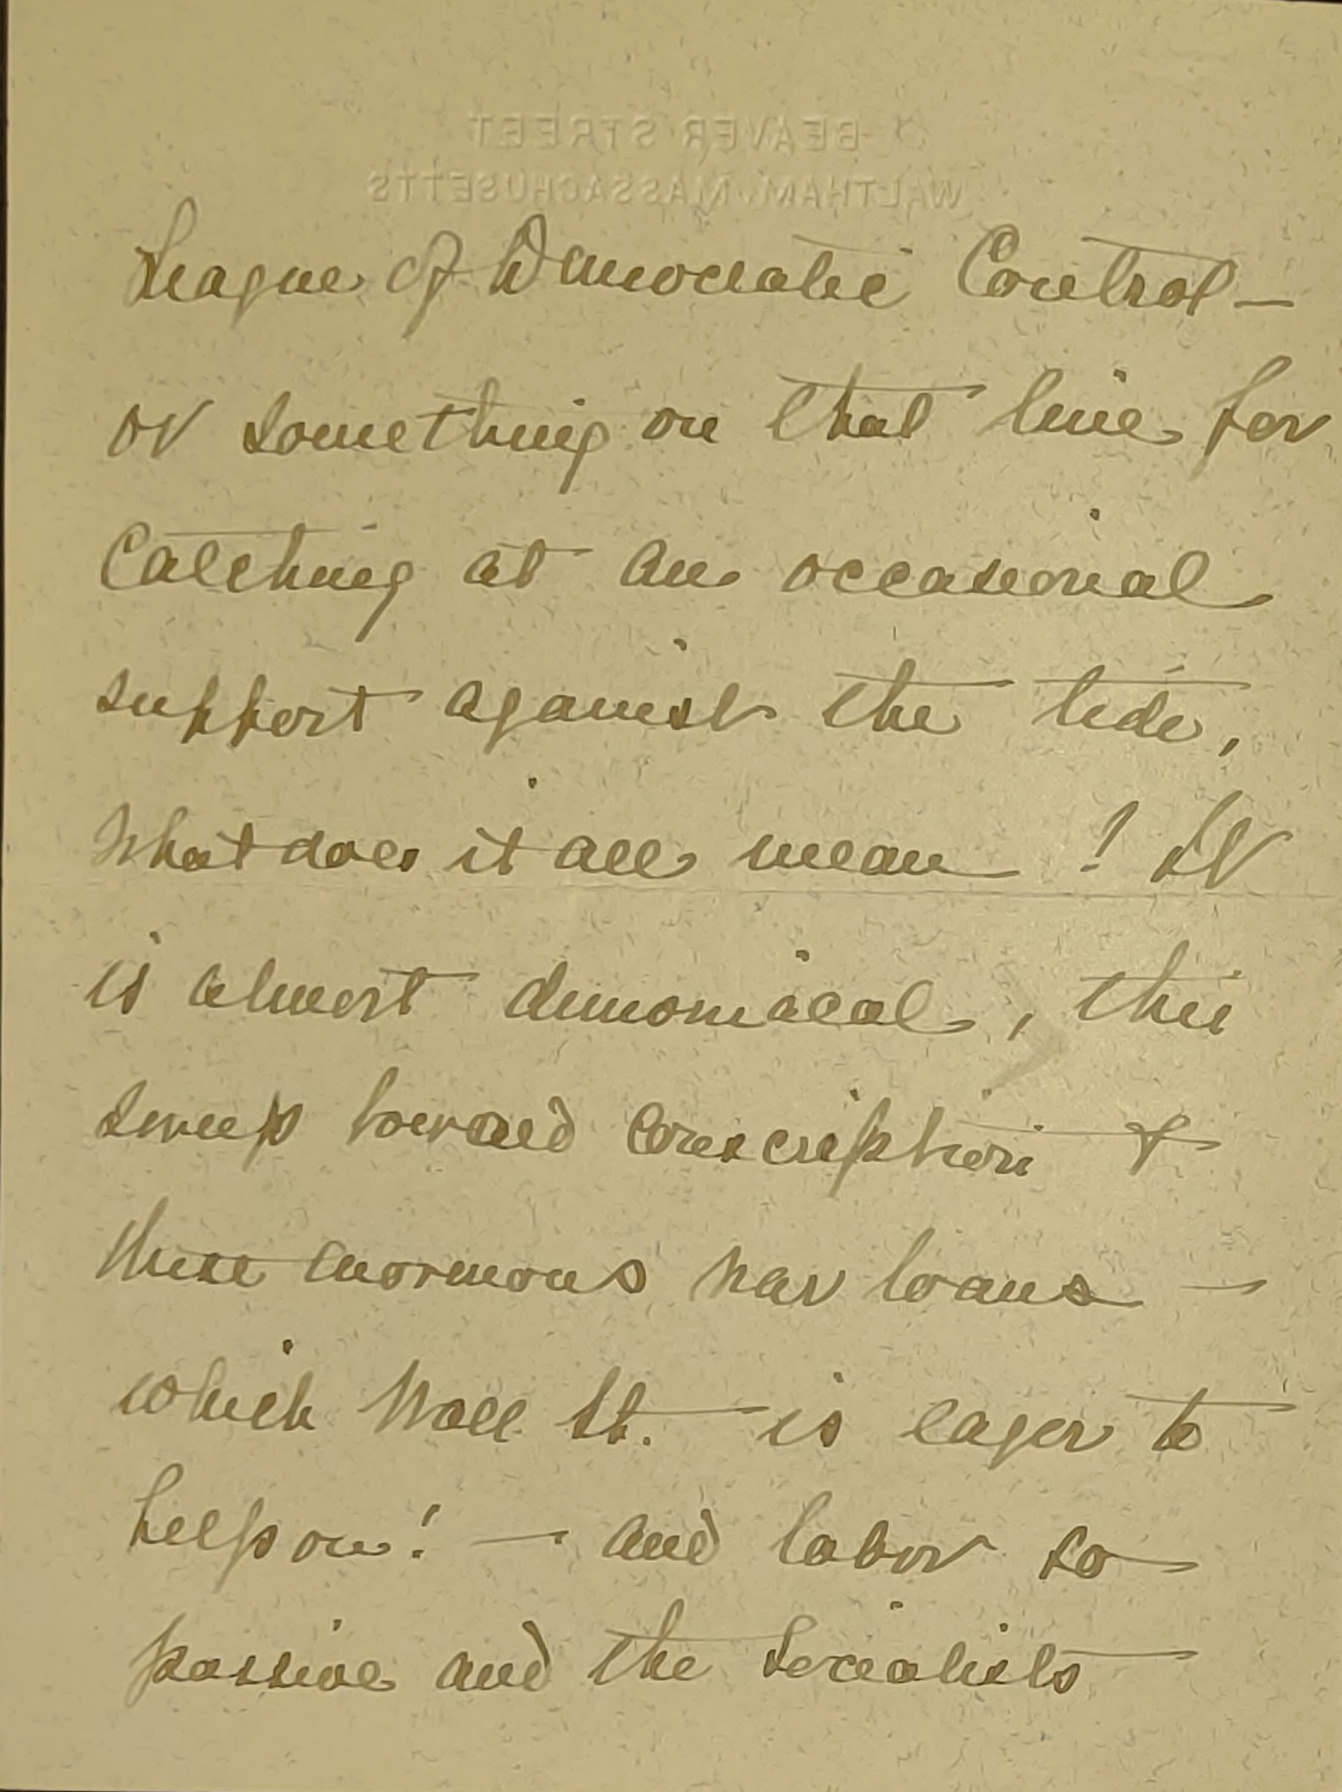 BEAVER STREET
WALTHAM, MASSACHUSETTS
League of Democratic Control –
or something on that line for
catching at an occasional
support against the tide,
What does it all mean! It
is almost dimonical, this
sweep toward conscription &
these enormous war loans –
which Wall St. is eager to
help on! – and labor so
passive and the Socialists